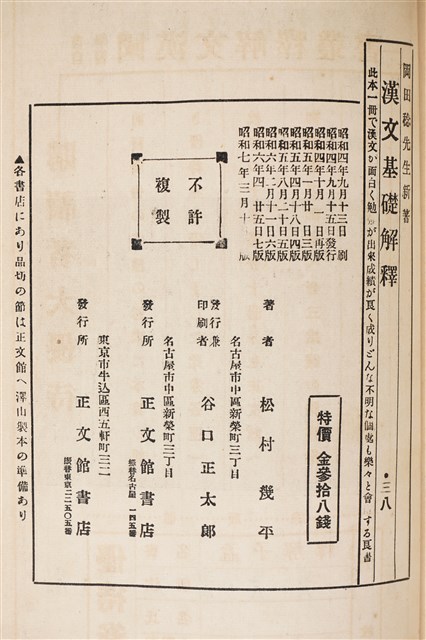 岡田稔先生新著
漢文基礎解釋
・三八
此本一冊で漢文が面白く勉 が出來成績が良く成りどんな不明な個處も樂々と會 する良書
特價 金參拾八錢
昭和四年九月十三日 刷
昭和四年九月十五日發行
昭和四年十月 一日再版
昭和五年一月廿日三版
昭和五年四月十八日四版
昭和五年八月二十日五版
昭和六年二月十一日六版
昭和六年四 廿五日七版
昭和七年三月十 版
不許
複製
著者 松村幾平
名古屋市中區新榮町三丁目
發行兼
印刷者 谷口正太郎
名古屋市中區新榮町三丁目
發行所 正文館書店
振替名古屋 一四五番
東京市牛込區西五軒町三二
發行所 正文館書店
振替東京二二五〇五番
▲各書店にあり品切の節は正文館へ澤山製本の準備あり